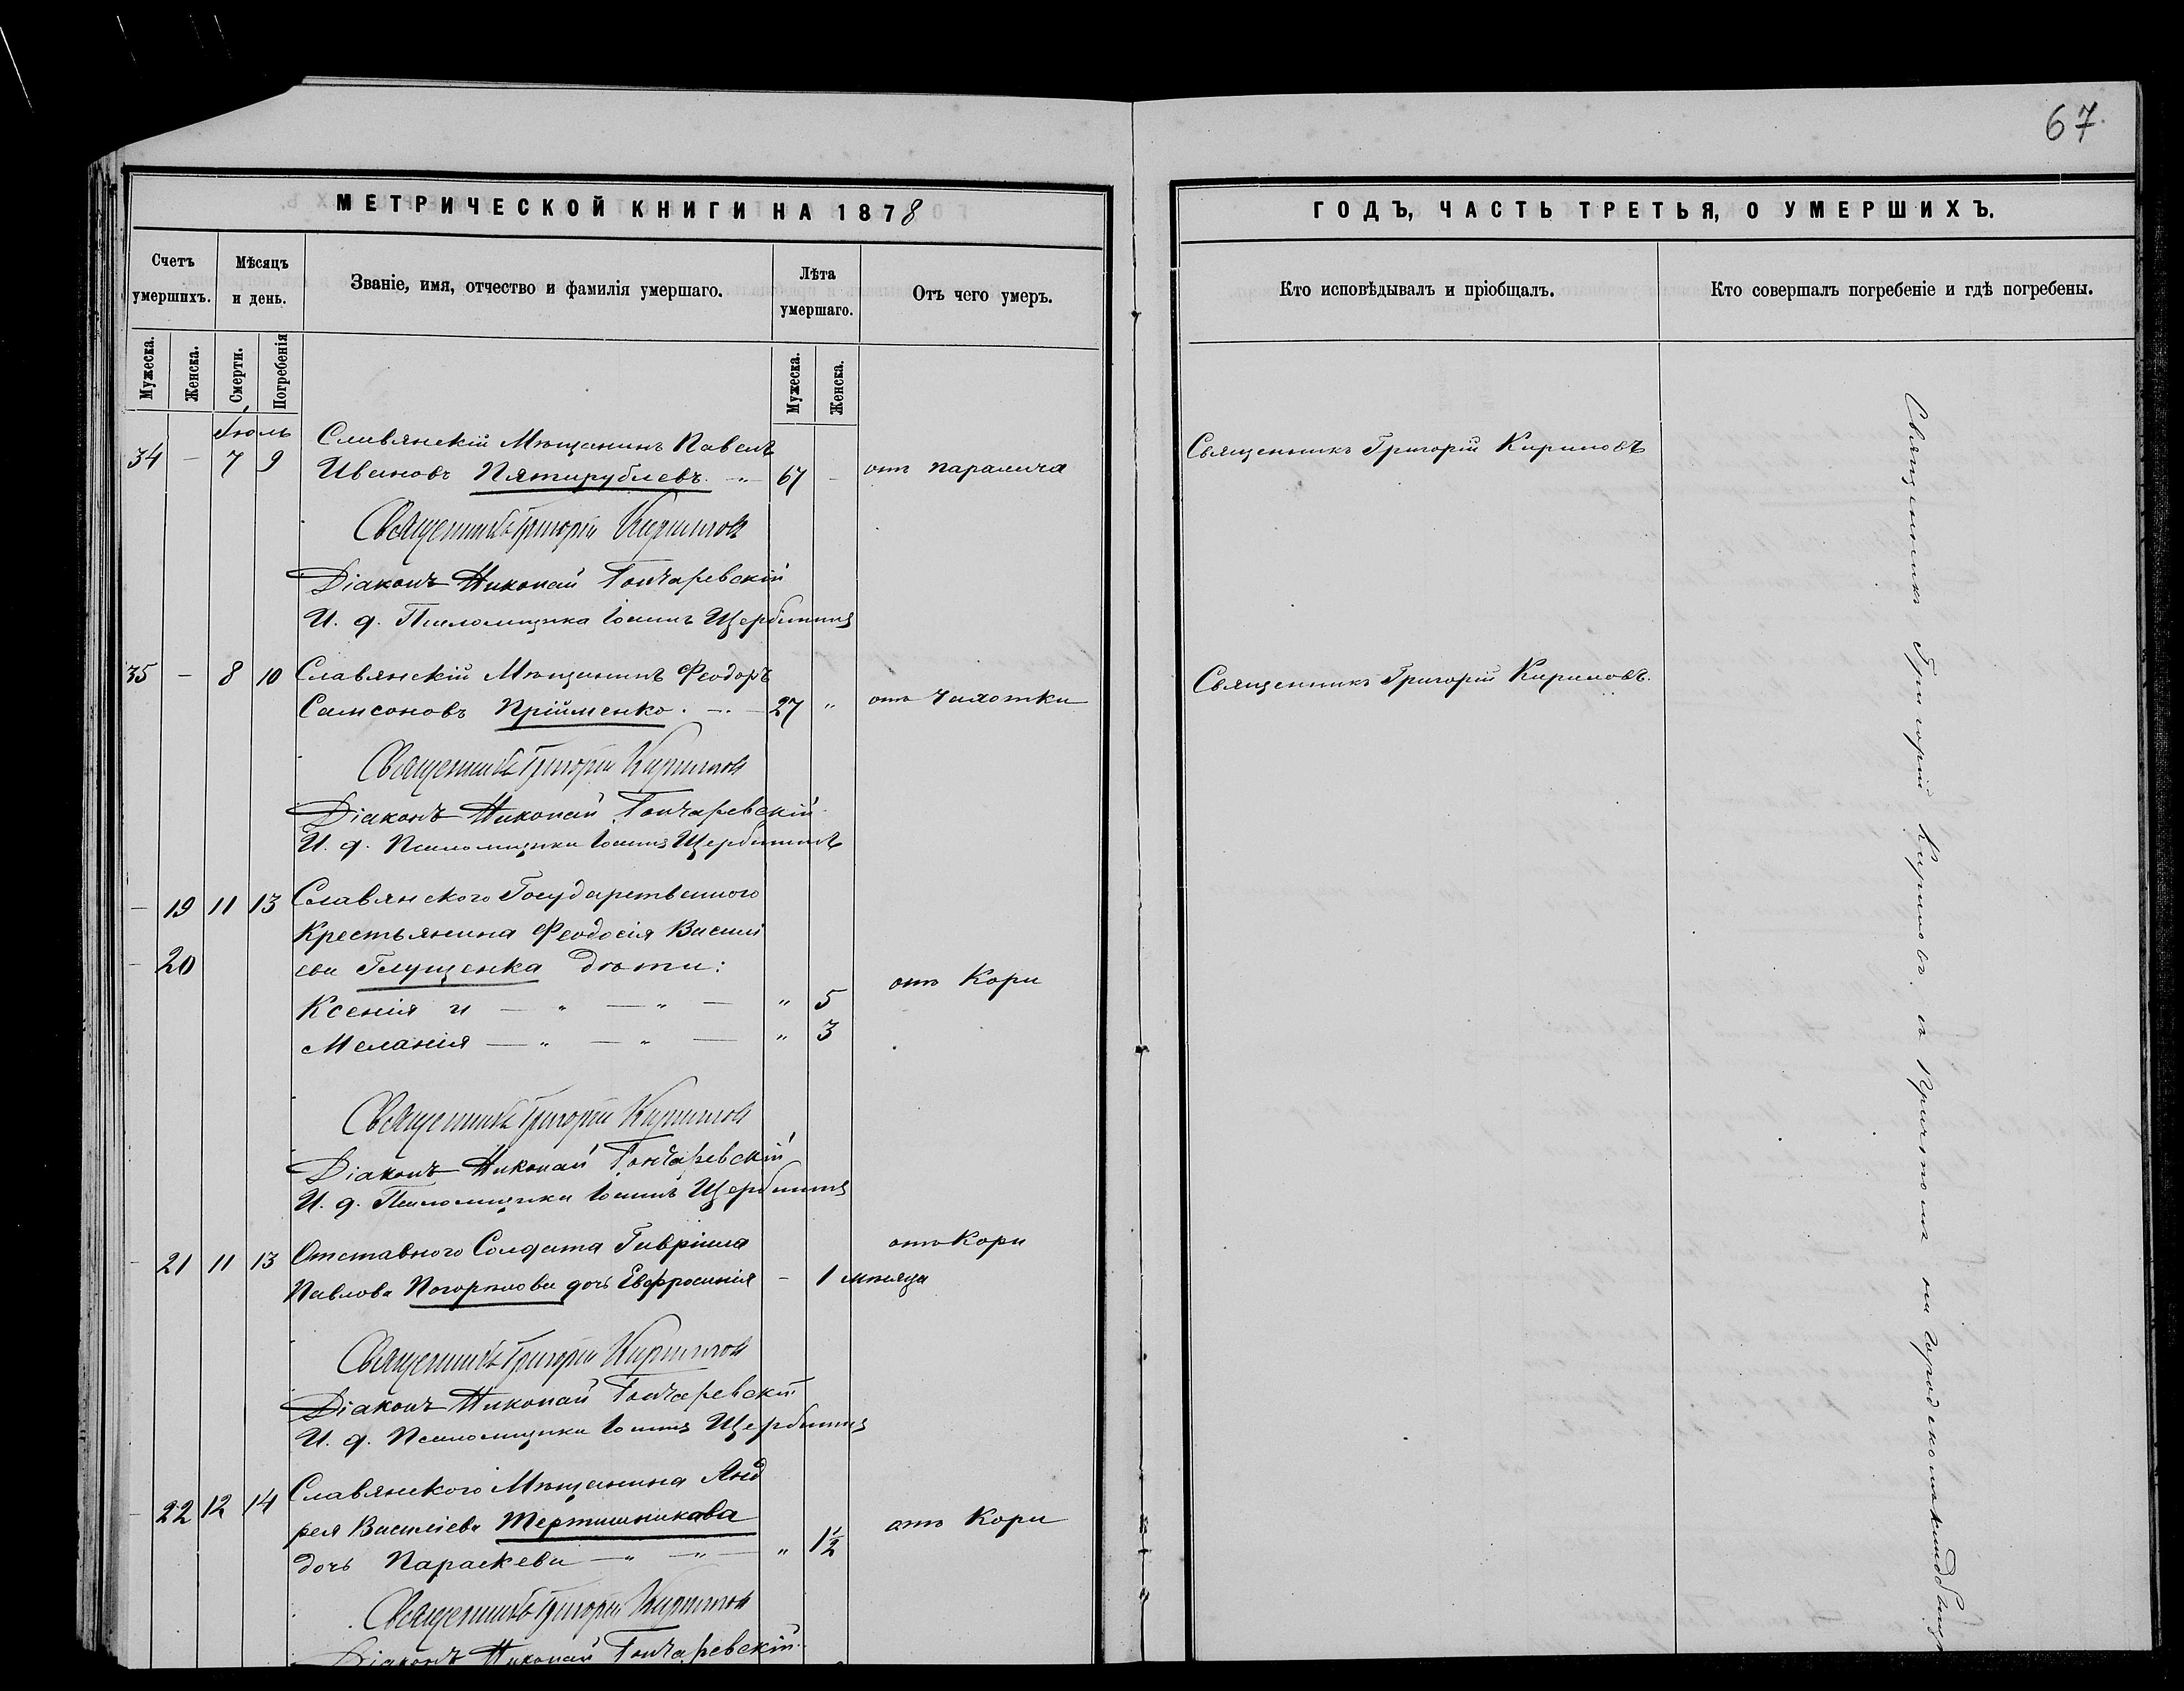 67.
МЕТРИЧЕСКОЙ КНИГИ НА 1878
ГОДЪ, ЧАСТЬ ТРЕТЬЯ, О УМЕРШИХЪ.
Счетъ умершихъ.
Мѣсяцъ и день.
Званіе, имя, отчество и фамилія умершаго.
Лѣта умершаго.
Отъ чего умеръ.
Кто исповѣдывалъ и пріобщалъ.
Кто совершалъ погребеніе и гдѣ погребены.
Мужеска.
Женска.
Смерти.
Погребенія
Мужеска.
Женска.
Іюль
Славянскій Мѣщанинъ Павелъ
34 – 7 9 Ивановъ Пятирублевъ. 67 – отъ паралича
Священникъ Григорій Кириловъ
Священникъ Григорій Кириловъ
Діаконъ Николай Гончаревскій
И. д. Псаломщика Іоаннъ Щербининъ
35 – 8 10 Славянскій Мѣщанинъ Феодоръ
Самсоновъ Прійменко. 27 " отъ Чахотки
Священникъ Григорій Кириловъ.
Священникъ Григорій Кириловъ
Діаконъ Николай Гончаревскій
И. д. Псаломщика Іоаннъ Щербининъ
– 19 11 13 Славянского Государственного
Крестьянина Феодосія Василі
– 20 ева Глущенка дѣти:
Ксенія и — " — " — " 5 отъ Кори
Меланія — " — " — " 3
Священникъ Григорій Кириловъ
Діаконъ Николай Гончаревскій
И. д. Псаломщика Іоаннъ Щербининъ
– 21 11 13 Отставного Солдата Гавріила отъ Кори
Павлова Погорѣлова дочь Евфросинія – 1 мѣсяца
Священникъ Григорій Кириловъ
Діаконъ Николай Гончаревскій
И. д. Псаломщика Іоаннъ Щербининъ
– 22 12 14 Славянского Мѣщанина Анд
рея Василіева Тертишникова
дочь Параскева — " — " — " 1½ отъ Кори
Священникъ Григорій Кириловъ
Діаконъ Николай Гончаревскій
Священникъ Григорій Кириловъ. съ Причтомъ на городскомъ кладбищѣ